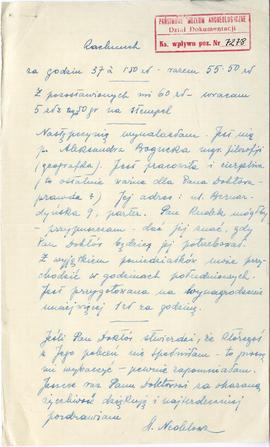 PAŃSTWOWE MUZEUM ARCHEOLOGICZNE
Dział Dokumentacji
Ks. wpływu poz. Nr 7278
Rachunek
za godzin 37 à 1.50 zł - razem 55.50 zł
Z pozostawionych mi 60 zł - wracam
5 zł 50 gr na stempel
Następczynię wynalazłam. Jest nią
p. Aleksandra mgr. filozofii
(geografka). Jest pracowita i cierpliwa
(to ostatnie ważne dla Pana Doktora -
prawda?) Jej adres: ul. Bernar-
dyńska 9, parter. Pan Rudek mógłby
- przypuszczam - dać jej znać, gdy
Pan Doktór będzie jej potrzebował.
Z wyjątkiem poniedziałków może przy-
chodzić w godzinach południowych.
Jest przygotowana na wynagrodzenie
mniejwięcej 1 zł za godzinę.
Jeśli Pan Doktór stwierdzi, że któregoś
z Jego poleceń nie spełniłam - to proszę
mi wybaczyć - pewnie zapomniałam.
Jeszcze raz Panu Doktorowi za okazaną
życzliwość dziękuję i najserdeczniej
pozdrawiam